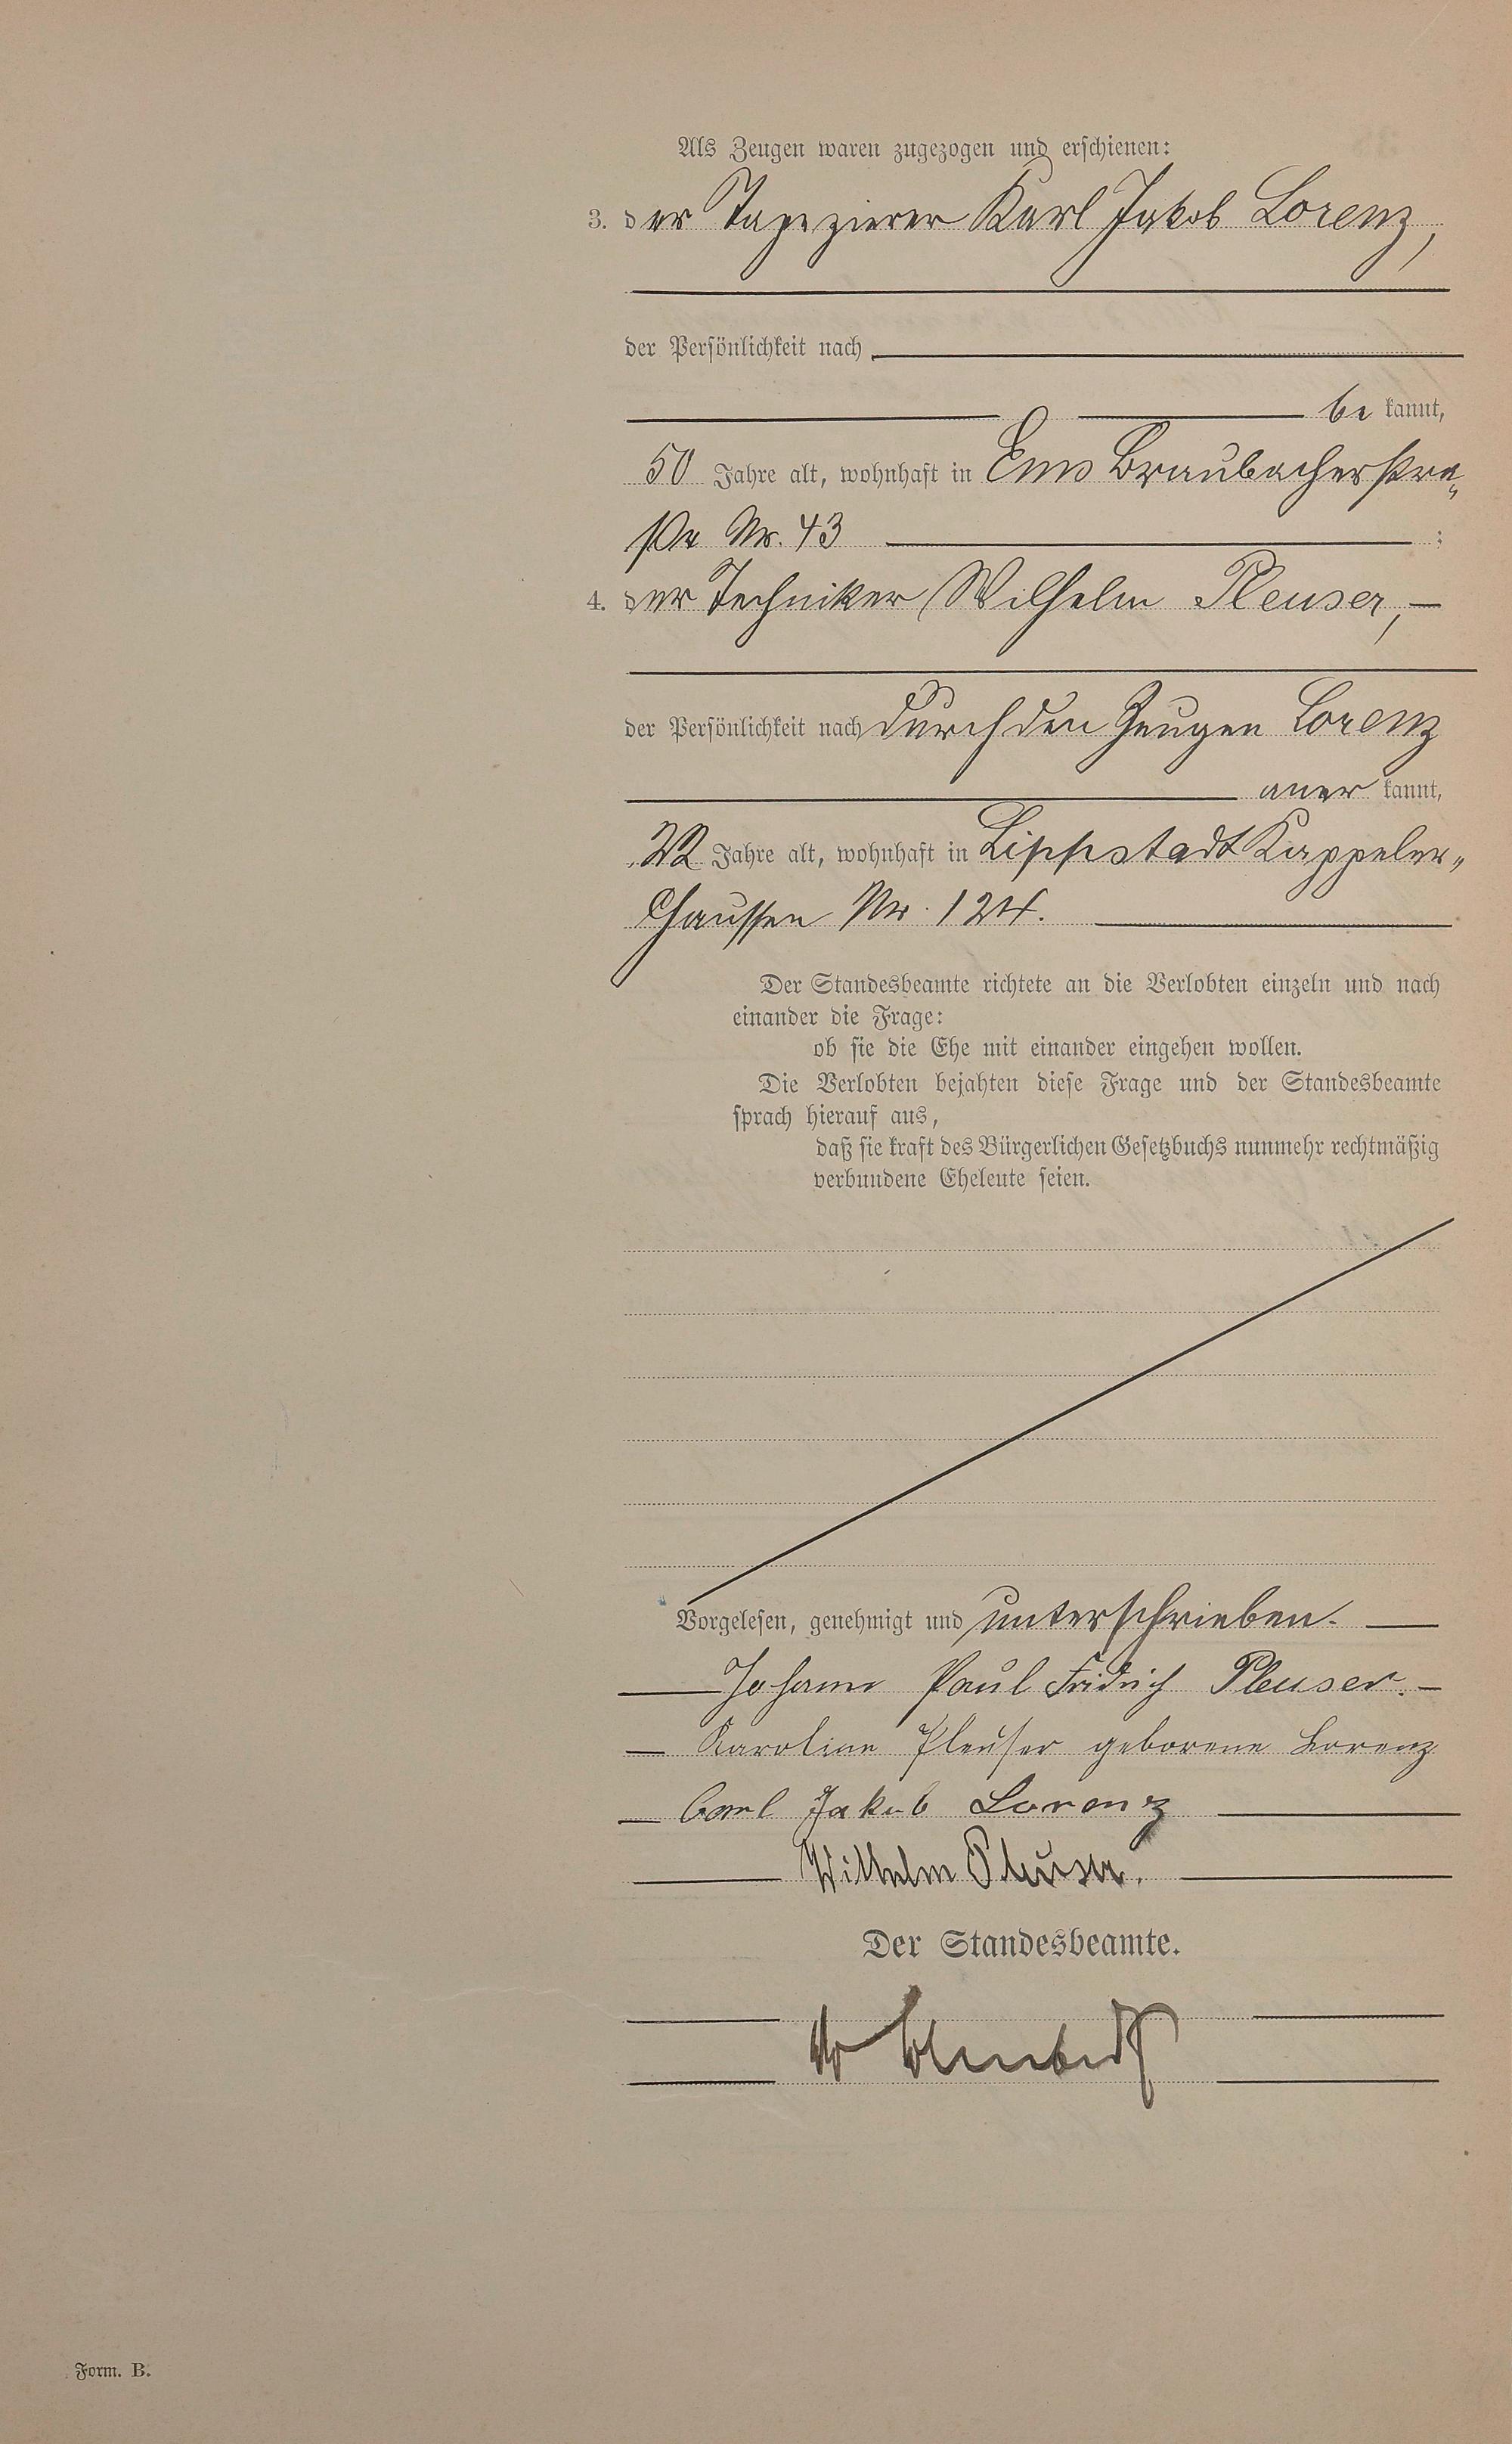 Als Zeugen waren zugezogen und erschienen:
3. der Tapezierer Karl Jakob Lorenz,
der Persönlichkeit nach
be kannt,
50 Jahre alt, wohnhaft in Ems Braubacherstra-
ße Nr. 43 ;
4. der Techniker Wilhelm Pleuser,
der Persönlichkeit nach durch den Zeugen Lorenz
aner kannt,
22 Jahre alt, wohnhaft in Lippstadt Kappeler-
Chaussee Nr. 124.
Der Standesbeamte richtete an die Verlobten einzeln und nach
einander die Frage:
ob sie die Ehe mit einander eingehen wollen.
Die Verlobten bejahten diese Frage und der Standesbeamte
sprach hierauf aus,
daß sie kraft des Bürgerlichen Gesetzbuchs nunmehr rechtmäßig
verbundene Eheleute seien.
Vorgelesen, genehmigt und unterschrieben.
Johann Paul Fridrich Pleuser.
Karoline Pleuser geborene Lorenz
Carl Jakob Lorenz
Wilhelm Pleuser.
Der Standesbeamte.
Form. B.